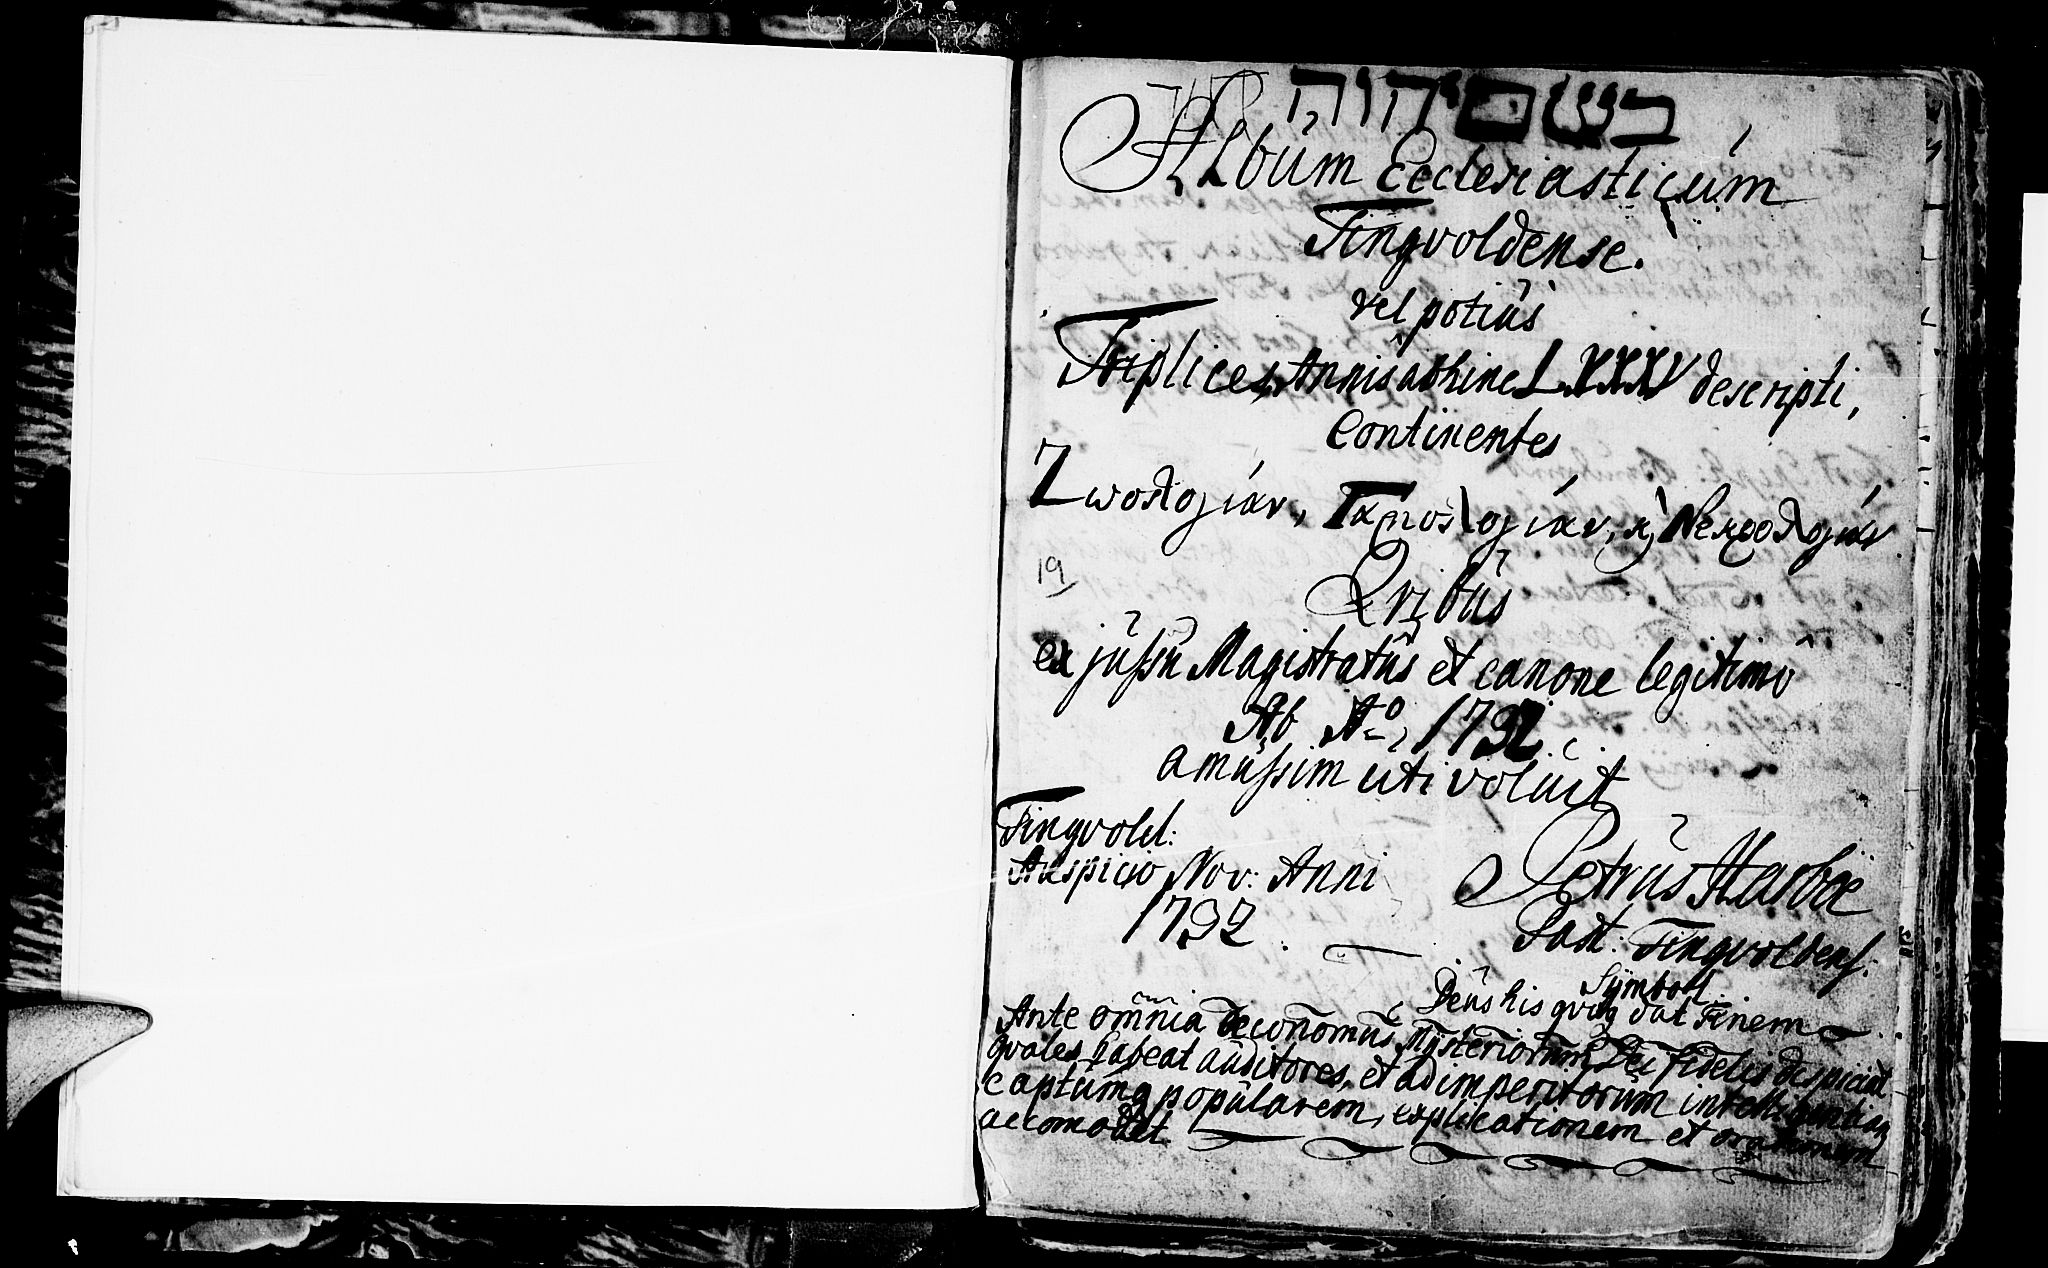 בשם יהוה
Album Ecclesiasticúm
Tingvoldense.
vel potiús
Triplices, Annis abhinc LXXXV descripti,
Continentes
Ζωολογίαν, Γαμολογίαν, ϗ Νεκρολογίαν
19
Qvibús
ex jússú Magistratús et canone legitimô
Ab Aº, 1732.
amússim uti volúit
Tingvold:
Auspicio Nov: Anni
1732.
Petrús Marbóe
Past: Tingvoldens:
Symbol.
Deús his qvoq dat Finem
Ante omnia oeconomús Mÿsteriorúm Dei fidelis despiciat
qvales habeat aúditores, et ad imperitorúm intelligentiam
captúmq popúlarem, explicationem et orationem
accomodet